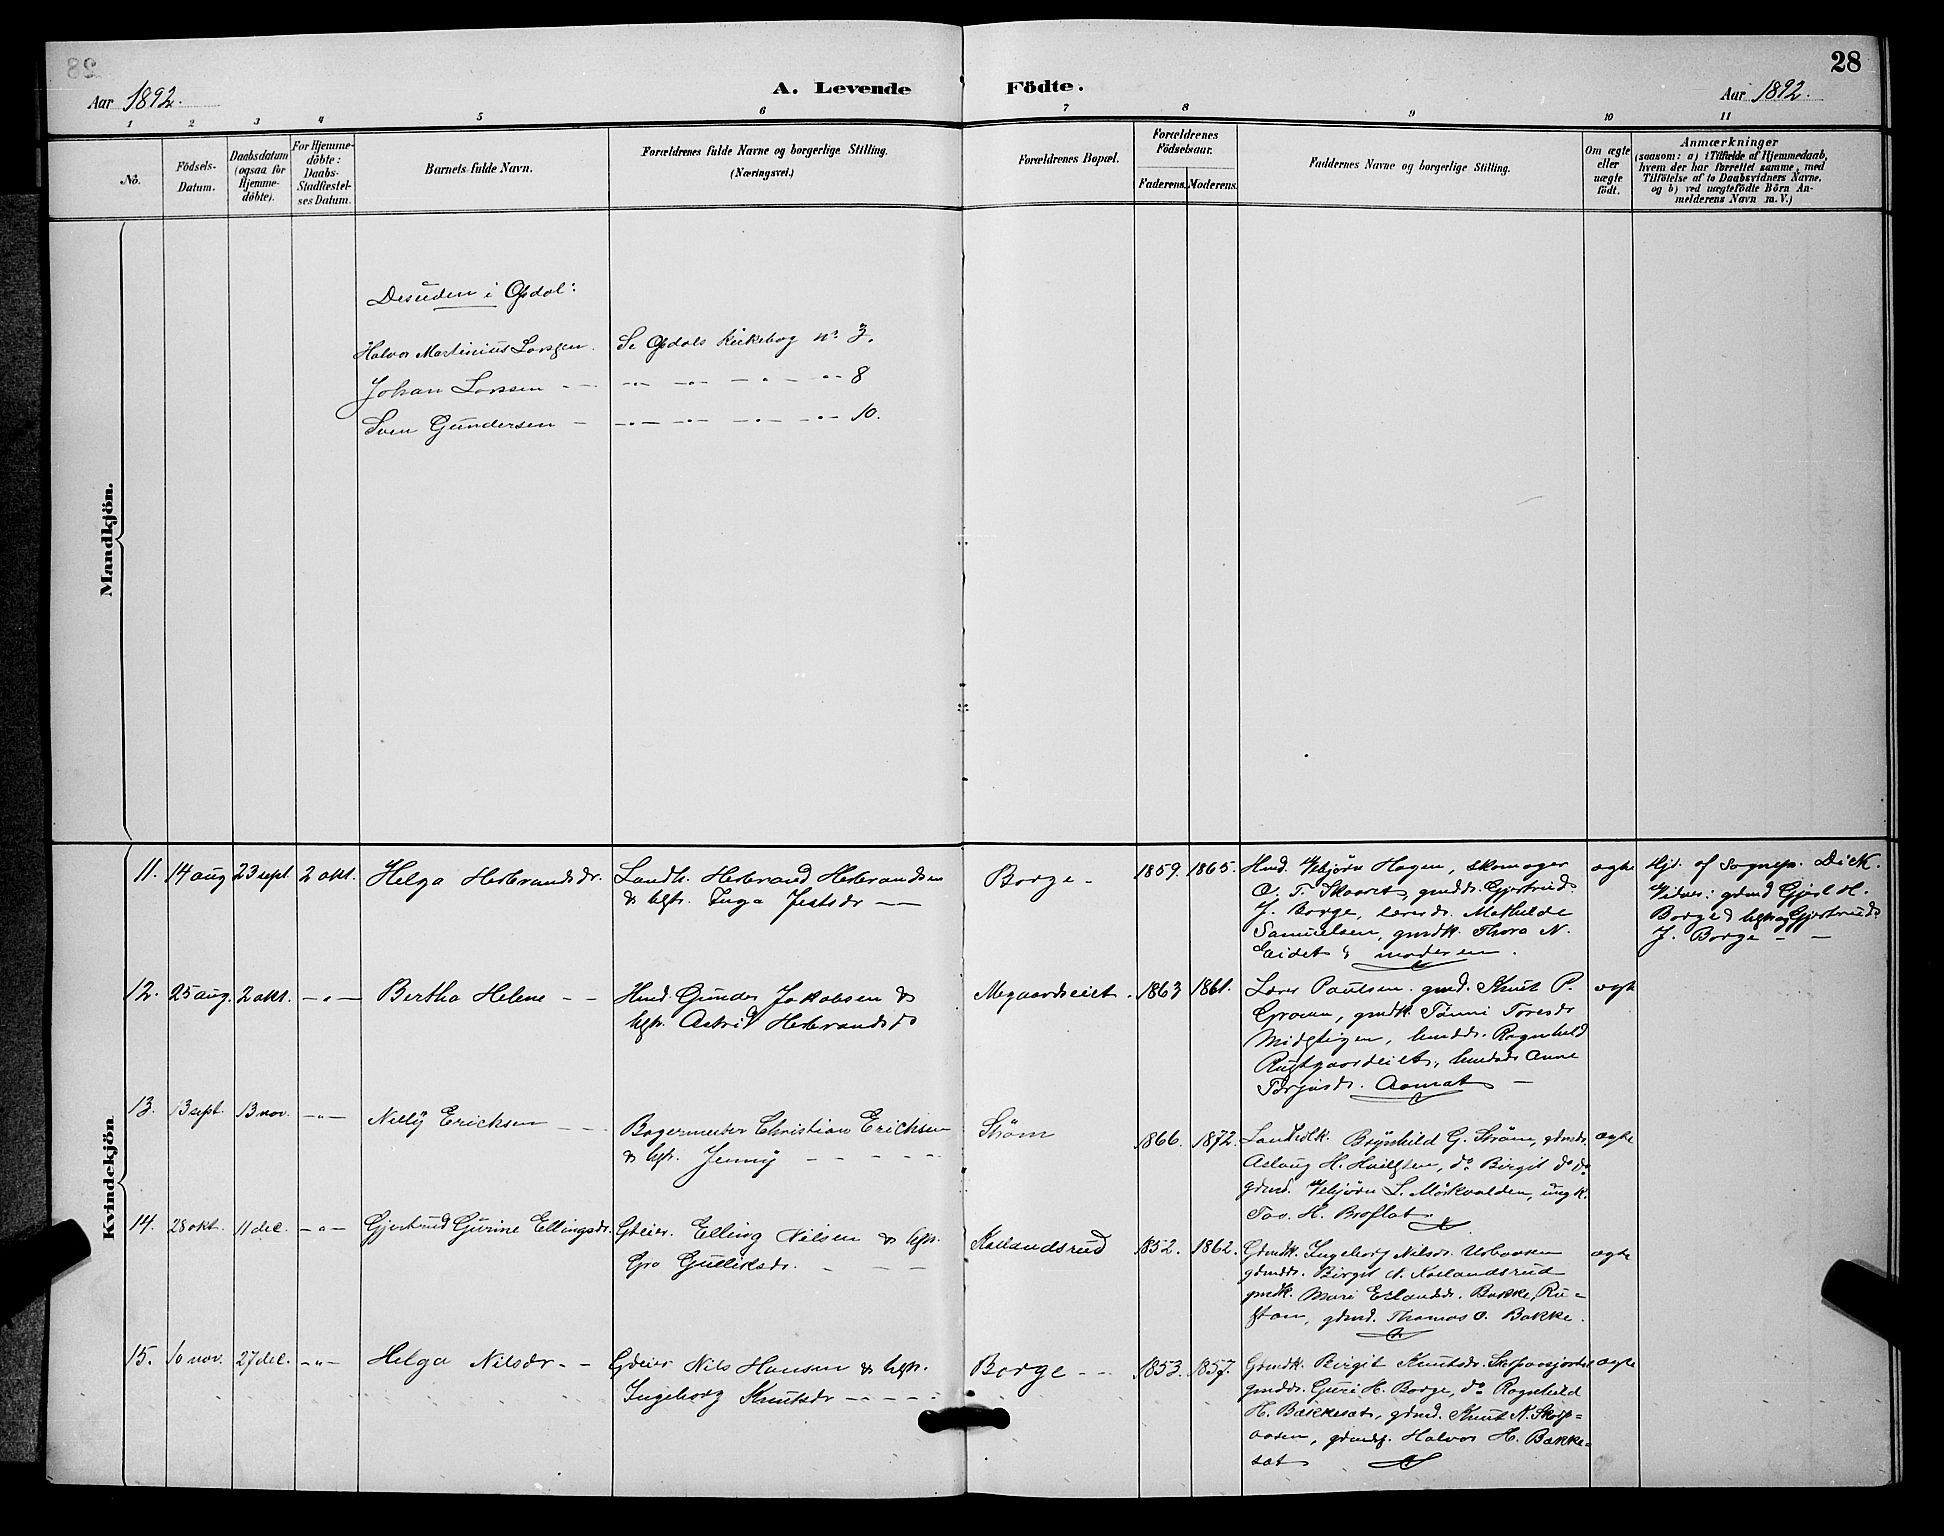 28
Aar 1892.
A. Levende Födte.
Aar 1892.
1 2 3 4 5 6 7 8 9 10 11
No.
Födsels-
Datum.
Daabsdatum
(ogsaa for
Hjemme-
döbte).
For Hjemme-
döbte:
Daabs-
Stadfæstel-
ses Datum.
Barnets fulde Navn.
Forældrenes fulde Navne og borgerlige Stilling.
(Næringsvei.)
Forældrenes Bopæl.
Forældrenes
Födselsaar.
Faderens. Moderens.
Faddernes Navne og borgerlige Stilling.
Om ægte
eller
uægte
født.
Anmærkninger
(saasom: a) i Tilfælde af Hjemmedaab,
hvem der har forrettet samme, med
Tilföielse af to Daabsvidners Navne,
og b) ved uægtefödte Börn An-
melderens Navn m. V.)
Mandkjön.
Desuden i Opdal:
Halvor Martinius Larsen. Se Opdals Kirkebog nr 3.
Johan Larssen - - -"- -"- -"- -"- 8
Sven Gundersen - -"- -"- -"- -"- 10.
Kvindekjön
11. 14 aug 23 sept. 2 okt. Helga Herbrandsdr.
Landh. Herbrand Herbrandsen
& hstr. Inga Jensdr - -
Borge - 1859. 1865.
Hmd. Vebjørn Hagen, skomager
O. T. Skaaret, gmdd. Gjertrud
J. Borge, lærerd. Mathilde
Samuelsen, gmdk. Thora N.
Eidet & moderen.
ægte
Hjd. af Sognepr. Dick.
Vidner: gdmd Gjøsl H.
Borge & hstr Gjertrud
J. Borge - -
12. 25 aug. 2 okt. -"- Bertha Helene - -
Hmd. Gunder Jakobsen &
hstr. Astrid Herbrandsd
Megaardseiet. 1863 1861.
Lærer Paulsen. gmd. Knut P.
Groven, gmdk. Tönni Toresdr
Midstigen, hmdd. Ragnhild
Rustgaardeiet, hmdd Anne
Torgusdr. Aamot -
ægte
13. 13 sept. 13 nov. -"- Nelly Ericksen - -
Bagermester Christian Ericksen
& hstr. Jenny - - - - -
Strøm 1866. 1872.
Landhdlk. Brynhild G. Strøm, gdmdd.
Aslaug H. Hvilsten, do Birgit do do
gdmd. Vebjørn L. Mörkvolden, ungk.
Tov. H. Broflot.
ægte
14. 28 okt. 11 dec. -"- Gjertrud Gurine Ellingsdr.
Gdeier. Elling Nilsen & hstr.
Gro Gulliksdr. - - -
Kollandsrud 1852. 1862.
Gdmdk. Ingeborg Nilsdr. Urbraaten
gdmdd. Birgit N. Kollandsrud
gmdk. Mari Erlandsdr. Bakke, Ru-
stan, gdmd. Thomas O. Bakke.
ægte
15. 10 nov. 27 dec. -"- Helga Nilsdr - -
Gdeier Nils Hansen & hstr.
Ingeborg Knutsdr - - - -
Borge - - 1853. 1857.
Gdmdk. Birgit Knutsdr.
gmdd. Guri H. Borge, do Ragnhild
H. Bakkesæt, gdmd. Knut N. Skrip-
aasen, gdmds. Halvor H. Bakke-
sæt
ægte